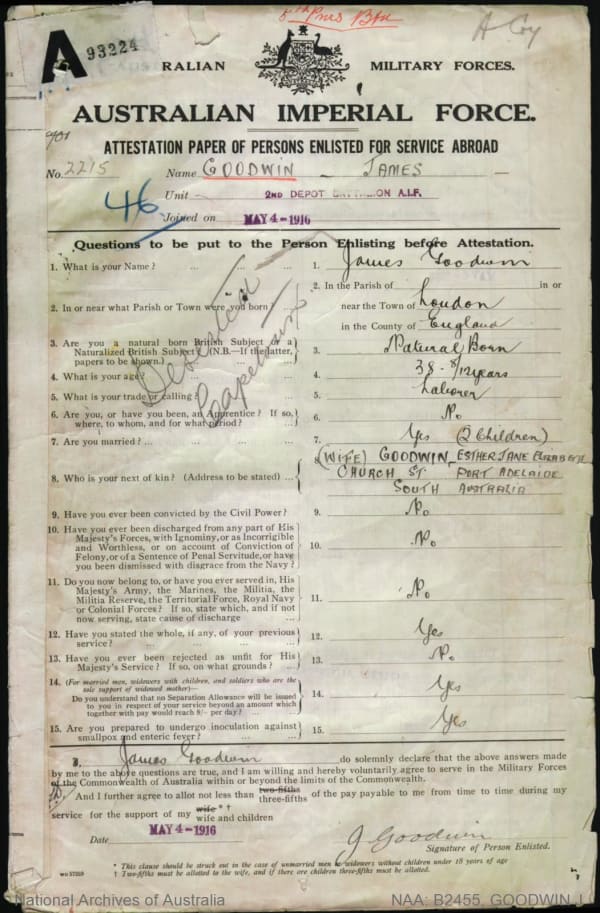 5th Pnrs Btn
A Coy
A 93224
RALIAN MILITARY FORCES.
AUSTRALIAN IMPERIAL FORCE.
ATTESTATION PAPER OF PERSONS ENLISTED FOR SERVICE ABROAD
No. 2215 Name GOODWIN JAMES
46
Unit 2ND DEPOT BATTALION A.I.F.
Joined on MAY 4-1916
Questions to be put to the Person Enlisting before Attestation.
1. What is your Name? ... ... ... ... 1. James Goodwin
2. In or near what Parish or Town were you born? 2. In the Parish of in or
near the Town of London
in the County of England
3. Are you a natural born British Subject or a
Naturalized British Subject? (N.B.—If the latter,
papers to be shown.) ... 3. Natural Born
4. What is your age? ... 4. 38 - 8/12 years
5. What is your trade or calling? 5. Laborer
6. Are you, or have you been, an Apprentice? If so,
where, to whom, and for what period? ... 6. No
7. Are you married? ... 7. Yes (2 Children)
8. Who is your next of kin? (Address to be stated) ... 8. (WIFE) GOODWIN ESTHER JANE ELIZABETH
CHURCH ST. PORT ADELAIDE
SOUTH AUSTRALIA
Deserted
Capetown
9. Have you ever been convicted by the Civil Power? 9. No
10. Have you ever been discharged from any part of His
Majesty's Forces, with Ignominy, or as Incorrigible
and Worthless, or on account of Conviction of
Felony, or of a Sentence of Penal Servitude, or have
you been dismissed with disgrace from the Navy? 10. No
11. Do you now belong to, or have you ever served in, His
Majesty's Army, the Marines, the Militia, the
Militia Reserve, the Territorial Force, Royal Navy
or Colonial Forces? If so, state which, and if not
now serving, state cause of discharge ... 11. No
12. Have you stated the whole, if any, of your previous
service? ... 12. Yes
13. Have you ever been rejected as unfit for His
Majesty's Service? If so, on what grounds? ... 13. No
14. (For married men, widowers with children, and soldiers who are the
sole support of widowed mother)—
Do you understand that no Separation Allowance will be issued
to you in respect of your service beyond an amount which
together with pay would reach 8/- per day? ... 14. Yes
15. Are you prepared to undergo inoculation against
smallpox and enteric fever? ... 15. Yes
I, James Goodwin do solemnly declare that the above answers made
by me to the above questions are true, and I am willing and hereby voluntarily agree to serve in the Military Forces
of the Commonwealth of Australia within or beyond the limits of the Commonwealth.
And I further agree to allot not less than two-fifths three-fifths of the pay payable to me from time to time during my
service for the support of my wife * † wife and children
Date MAY 4-1916
J Goodwin
Signature of Person Enlisted.
* This clause should be struck out in the case of unmarried men or widowers without children under 18 years of age
† Two-fifths must be allotted to the wife, and if there are children three-fifths must be allotted.
National Archives of Australia NAA: B2455, GOODWIN J